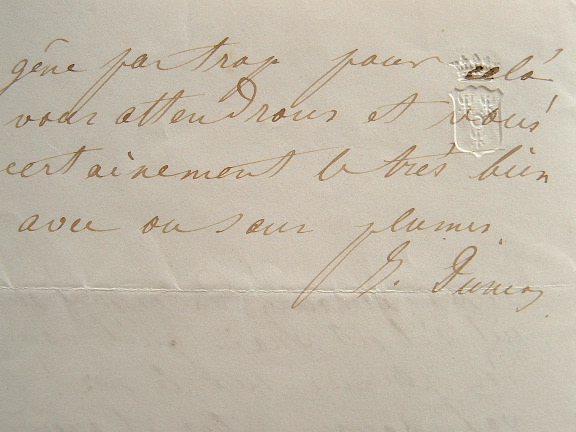 gêne par trop pour celà
vous attendrons et vous
certainement le très bien
avec ou sans plumes
Dumas